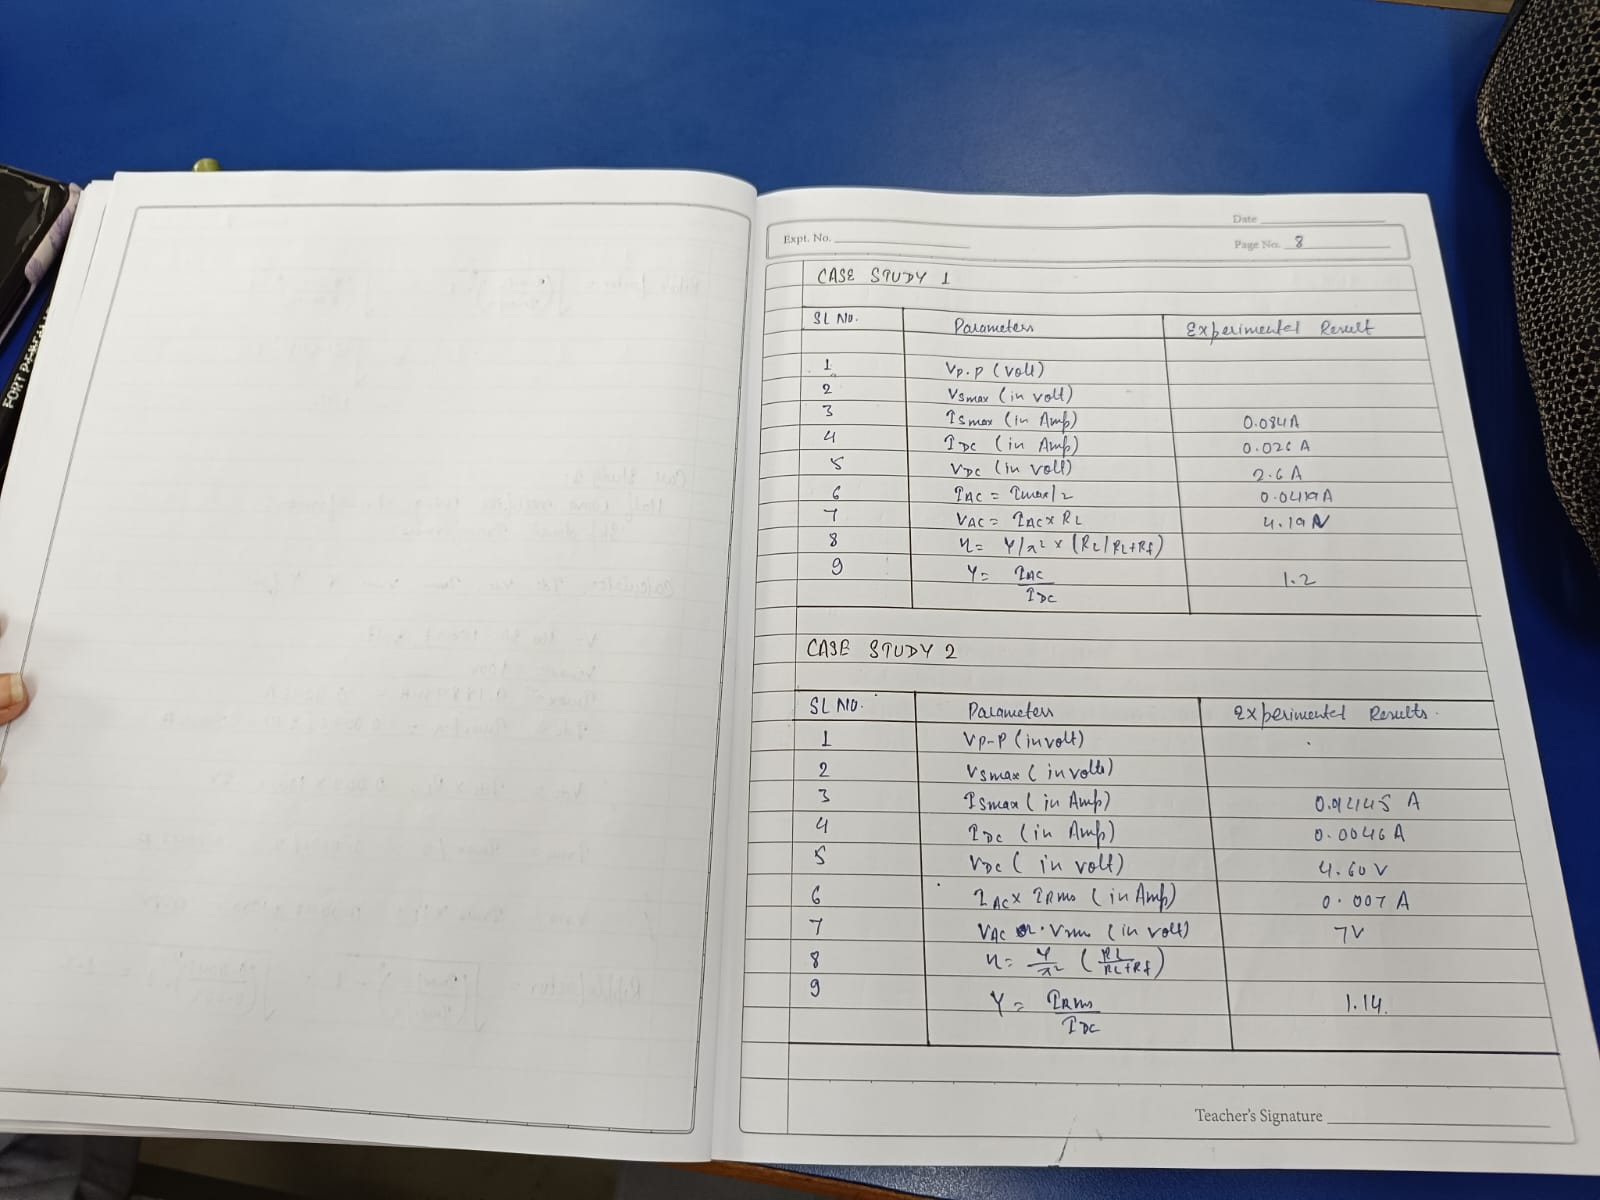 Date
Expt. No.
Page No. 8
CASE STUDY 1
SL NO. Parameters Experimental Result
1 Vp.p (volt)
2 Vsmax (in volt)
3 Ismax (in Amp) 0.084A
4 IDC (in Amp) 0.026 A
5 VDC (in volt) 2.6 A
6 IAC = Imax/2 0.0419A
7 VAC = IAC x RL 4.19 V
8 η = 4/π2 x (RL/RL+Rf)
9 γ = IAC / IDC 1.2
CASE STUDY 2
SL NO. Parameters Experimental Results.
1 Vp-p (in volt)
2 Vsmax (in volts)
3 Ismax (in Amp) A
4 IDC (in Amp) 0.0046 A
5 VDC (in volt) 4.60 V
6 IAC x IRms (in Amp) 0.007 A
7 VAC or Vrms (in volt) 7V
8 η = 4/π2 (RL/RL+Rf)
9 γ = IRms / IDC 1.14.
Teacher's Signature